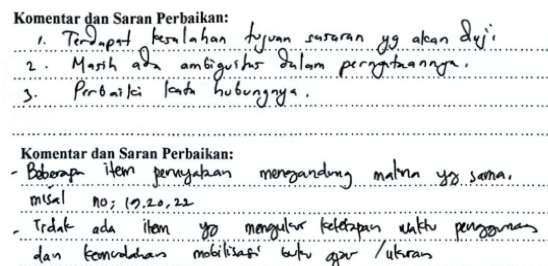 Komentar dan Saran Perbaikan:
1. Terdapat kesalahan tujuan sasaran yg akan diuji
2. Masih ada ambiguitas dalam pernyataannya.
3. Perbaiki kata hubungnya.
Komentar dan Saran Perbaikan:
- Beberapa item pernyataan mengandung makna yg sama.
misal no; 19.20,22
- Tidak ada item yg mengukur ketetapan waktu penggunaan
dan kemudahan mobilisasi buku /ukuran